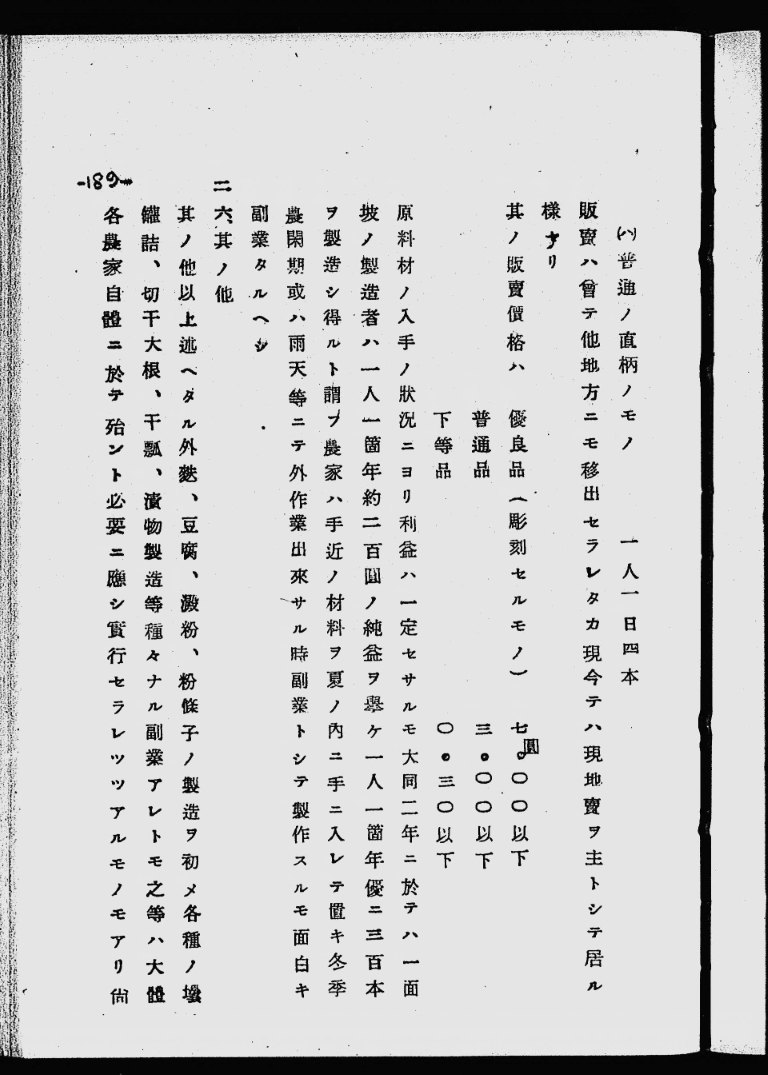 (ハ)普通ノ直柄ノモノ　一人一日四本
販賣ハ曾テ他地方ニモ移出セラレタカ現今テハ現地賣ヲ主トシテ居ル
様ナリ
其ノ販賣價格ハ　優良品(彫刻セルモノ)　七圓。〇〇以下
普通品　三。〇〇以下
下等品　〇。三〇以下
原料材ノ入手ノ狀況ニヨリ利益ハ一定セサルモ大同二年ニ於テハ一面
坡ノ製造者ハ一人一箇年約二百圓ノ純益ヲ擧ケ一人一箇年優ニ三百本
ヲ製造シ得ルト謂フ農家ハ手近ノ材料ヲ夏ノ內ニ手ニ入レテ置キ冬季
農閑期或ハ雨天等ニテ外作業出來サル時副業トシテ製作スルモ面白キ
副業タルヘシ
二六、其ノ他
其ノ他以上述ヘタル外麩、豆腐、澱粉、粉條子ノ製造ヲ初メ各種ノ壜
罐詰、切干大根、干瓢、漬物製造等種々ナル副業アレトモ之等ハ大體
各農家自體ニ於テ殆ント必要ニ應シ實行セラレツツアルモノモアリ尙
-189-